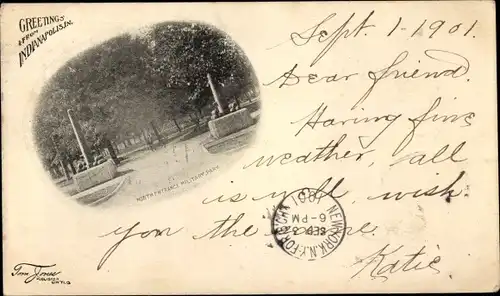 GREETINGS
FROM
INDIANAPOLIS, IN.
Sept. 1-1901.
Dear friend.
Having fine
weather, all
is well, wish
you the same
Katie
NORTH ENTRANCE MILITARY PARK
NEW YORK, N.Y. FOREIGN
SEP 3
6-PM
1901
Tom Jones
CIN'TI. O.